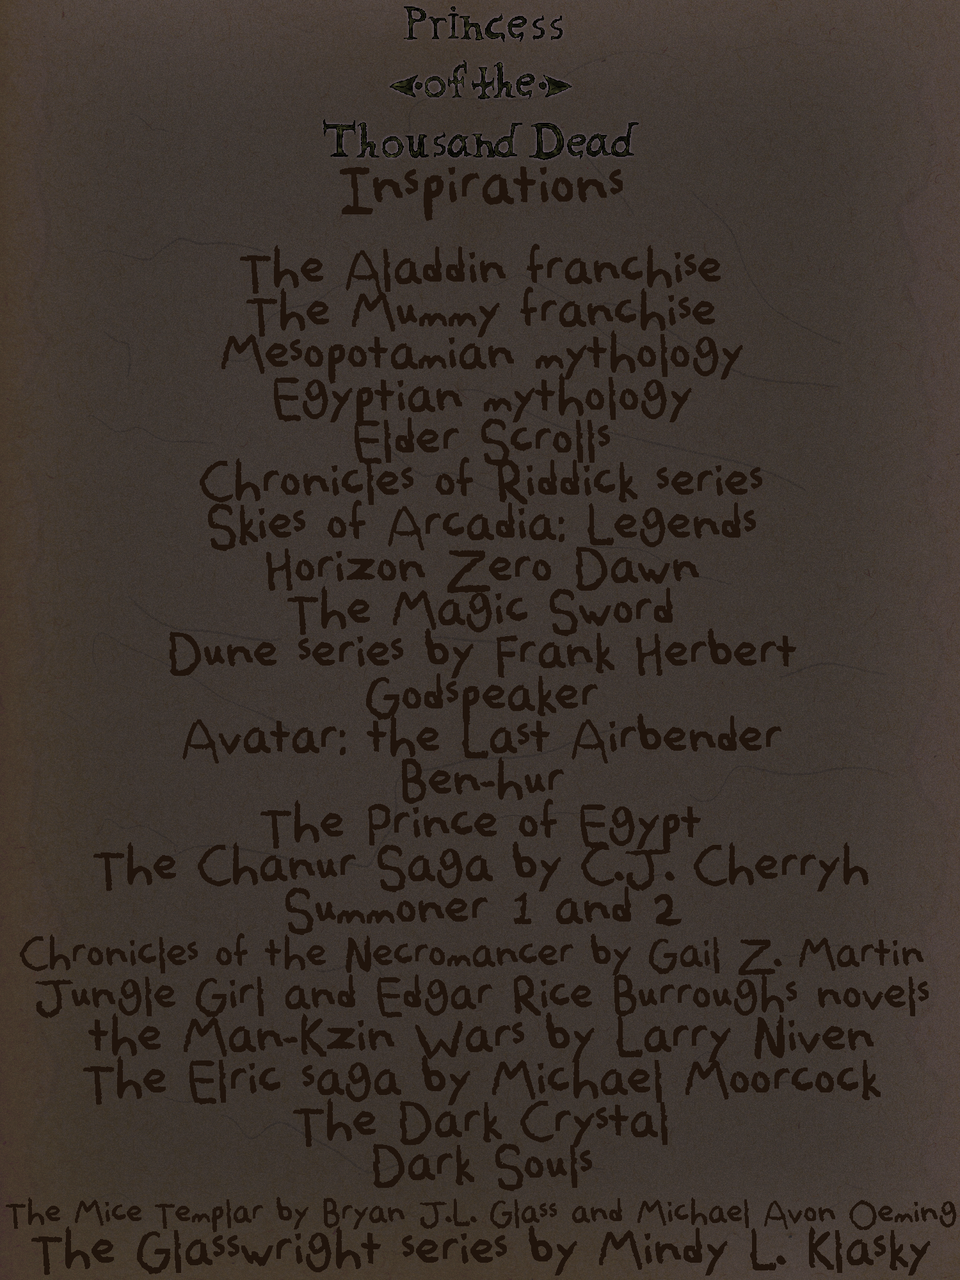 Princess
of the
Thousand Dead
Inspirations
The Aladdin franchise
The Mummy franchise
Mesopotamian mythology
Egyptian mythology
Elder Scrolls
Chronicles of Riddick series
Skies of Arcadia: Legends
Horizon Zero Dawn
The Magic Sword
Dune series by Frank Herbert
Godspeaker
Avatar: the Last Airbender
Ben-hur
The Prince of Egypt
The Chanur Saga by C.J. Cherryh
Summoner 1 and 2
Chronicles of the Necromancer by Gail Z. Martin
Jungle Girl and Edgar Rice Burroughs novels
the Man-Kzin Wars by Larry Niven
The Elric saga by Michael Moorcock
The Dark Crystal
Dark Souls
The Mice Templar by Bryan J.L. Glass and Michael Avon Oeming
The Glasswright series by Mindy L. Klasky